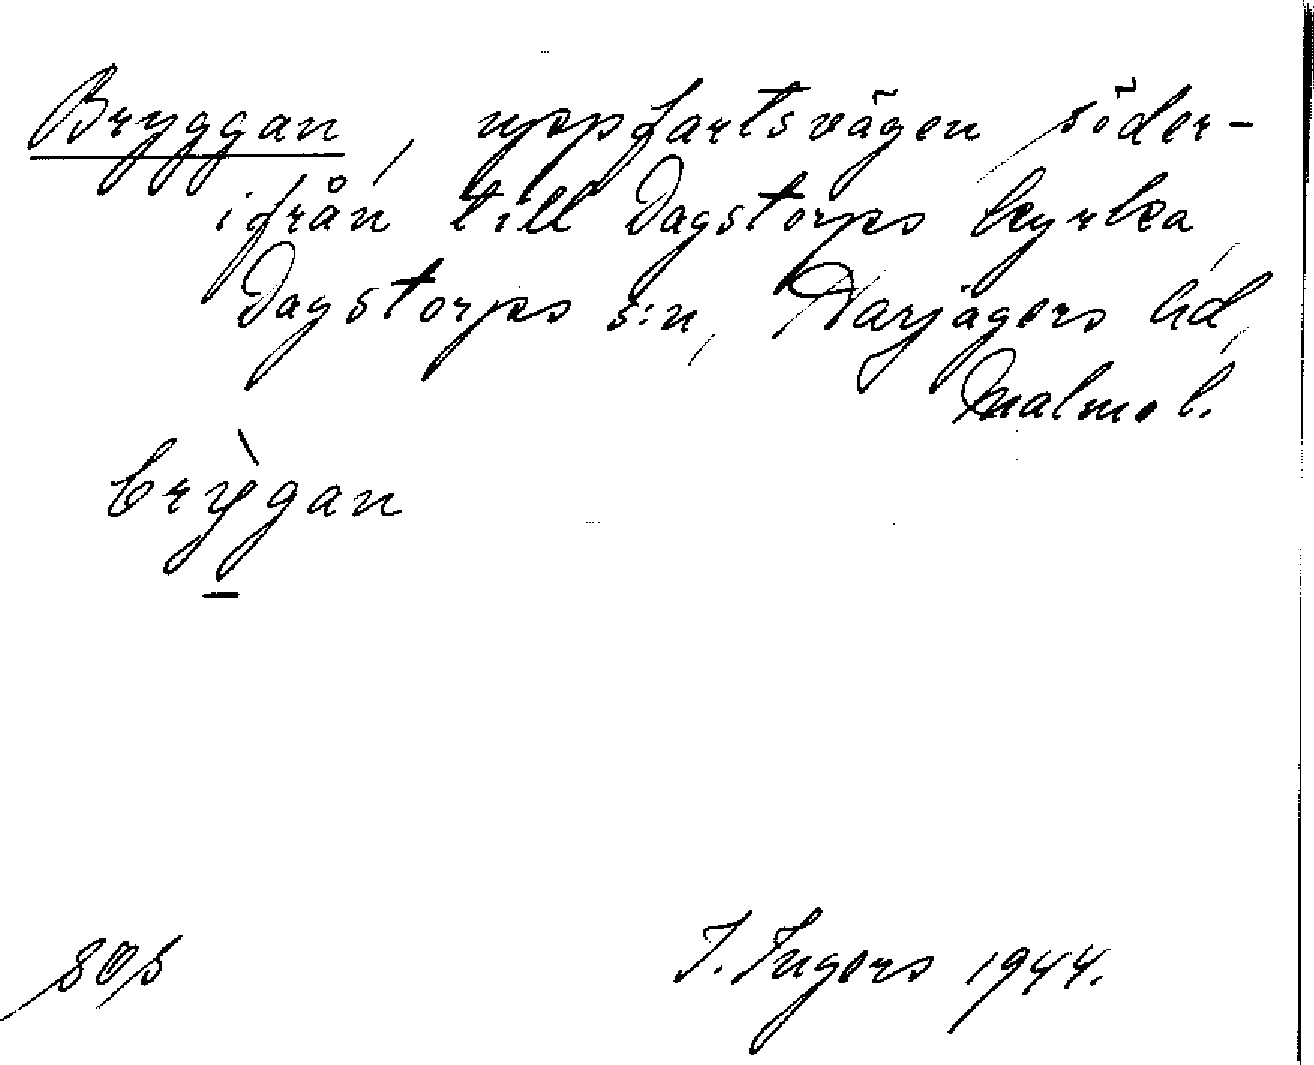 Bryggan, uppfartsvägen söder-
ifrån till Dagstorps kyrka,
Dagstorps s:n, Harjagers hd,
Malmöl.
brỳgan
I. Ingers 1944.